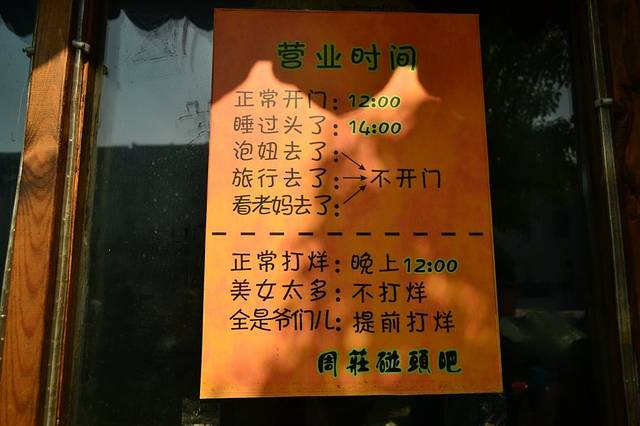 营业时间
正常开门：12:00
睡过头了：14:00
泡妞去了：
旅行去了：→不开门
看老妈去了：
正常打烊：晚上12:00
美女太多：不打烊
全是爷们儿：提前打烊
周莊碰頭吧